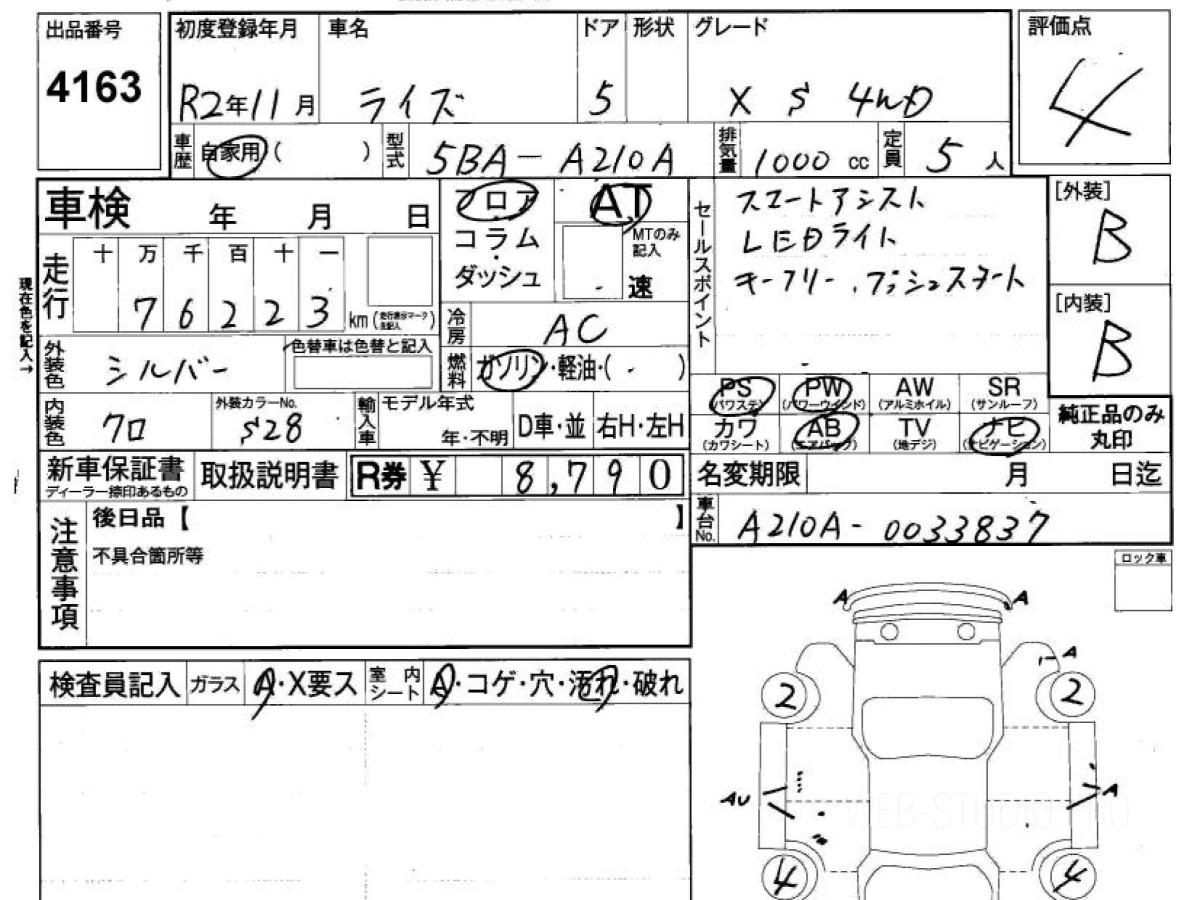 出品番号
4163
初度登録年月
R2年11月
車名
ライズ
ドア
5
形状
グレード
X S 4WD
評価点
4
車歴
自家用 ( )
型式
5BA-A210A
排気量
1000 cc
定員
5人
車検 年 月 日
フロア
コラム
・
ダッシュ
AT
MTのみ
記入
速
セールスポイント
スマートアシスト
LEDライト
キーフリー・プッシュスタート
[外装]
B
[内装]
B
現在色を記入→
走行
十 万 千 百 十 一
7 6 2 2 3
km
冷房
AC
外装色
シルバー
色替車は色替と記入
燃料
ガソリン・軽油・( )
PS
(パワステ)
PW
(パワーウィンド)
AW
(アルミホイル)
SR
(サンルーフ)
カワ
(カワシート)
AB
(エアバック)
TV
(地デジ)
ナビ
(ナビゲーション)
純正品のみ
丸印
内装色
クロ
外装カラーNo.
S28
輸入車
モデル年式
年・不明
D車・並
右H・左H
新車保証書
ディーラー捺印あるもの
取扱説明書
R券 ¥ 8,790
名変期限 月 日迄
車台No.
A210A-0033837
注意事項
後日品【 】
不具合箇所等
ロック車
A A
A
2 2
AU A
4 4
検査員記入
ガラス
A・X要ス
室内
シート
A・コゲ・穴・汚れ・破れ
WEB-STUDIO.PRO